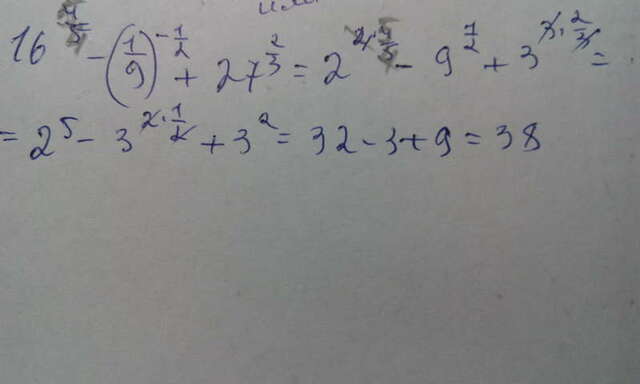 16 - (1/9)^(-1/2) + 27^(2/3) = 2 - 9^(1/2) + 3^(3·2/3) =
= 2^5 - 3^(2·1/2) + 3^2 = 32 - 3 + 9 = 38